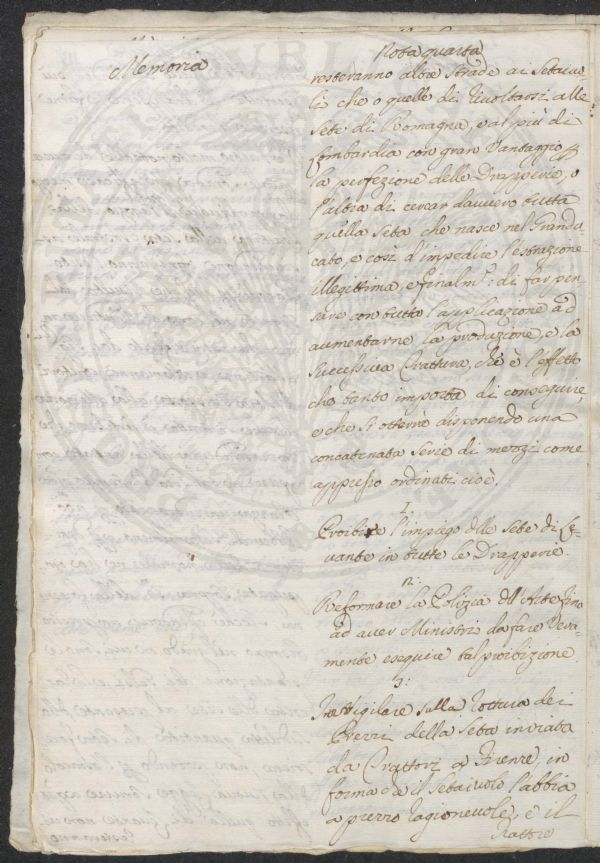 Memoria
Nota quarta
resteranno altre strade ai Setaiuo-
li che o quelle di rivoltarsi alle
Sete di Romagna, e al più di
Lombardia con gran vantaggio p
la perfezione delle Drapperie, o
l'altra di cercar davvero tutta
quella Seta che nasce nel Grandu
cato, e così d'impedire l'estrazione
illegittima, e finalmte: di far pen-
sare con tutta l'applicazione ad
aumentarne la produzione, e la
successiva Trattura, ch'è l'effetto
che tanto importa di conseguire,
e che si otterrà disponendo una
concatenata serie di mezzi come
appresso ordinati cioè.
1.
Proibire l'impiego delle Sete di Le-
vante in tutte le Drapperie.
2:
Reformare la Polizia dll'Arte fino
ad aver Ministri da fare vera-
mente eseguire tal proibizione
3:
Invigilare sulla rottura dei
Prezzi della Seta inviata
da Trattori a Firenze, in
forma che il Setaiuolo l'abbia
a prezzo ragionevole, e il
Trattore